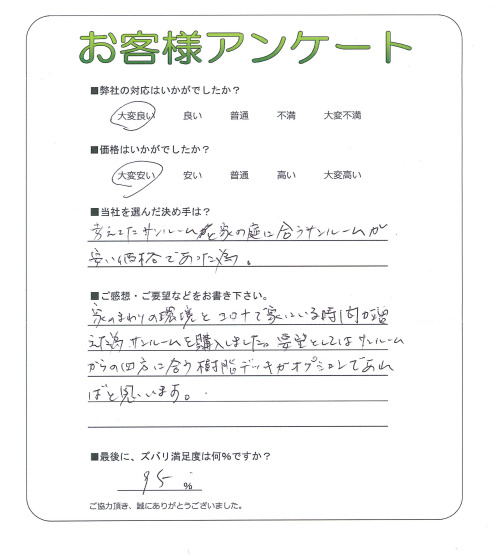 お客様アンケート
■弊社の対応はいかがでしたか？
大変良い 良い 普通 不満 大変不満
■価格はいかがでしたか？
大変安い 安い 普通 高い 大変高い
■当社を選んだ決め手は？
考えてたサンルームと家の庭に合うサンルームが
安い価格であった為。
■ご感想・ご要望などをお書き下さい。
家のまわりの環境とコロナで家にいる時間が増
えた為サンルームを購入しました。要望としてはサンルーム
からの四方に合う樹脂デッキがオプションであれ
ばと思います。
■最後に、ズバリ満足度は何％ですか？
95 ％
ご協力頂き、誠にありがとうございました。